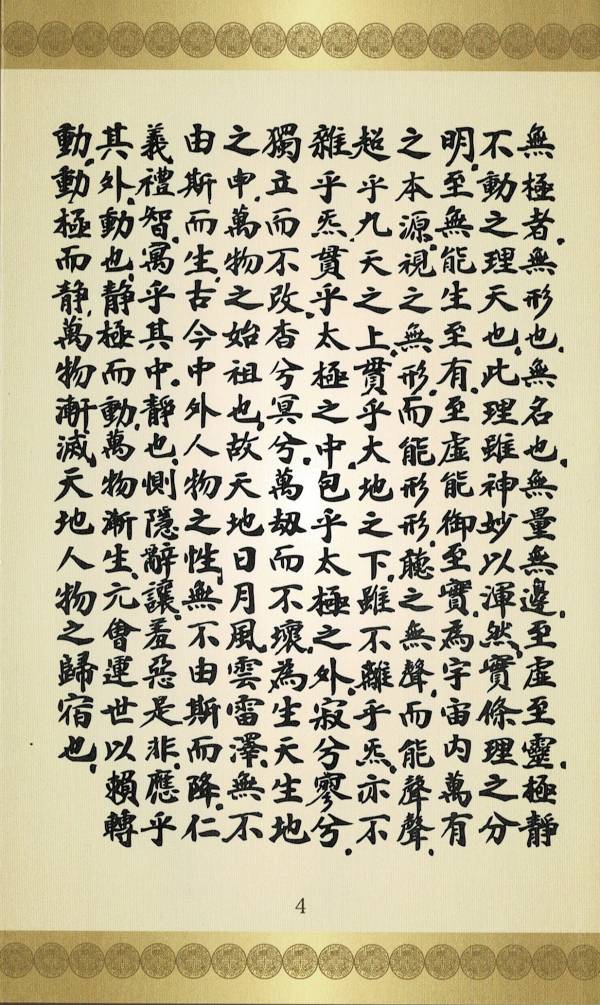 無極者，無形也，無名也，無量無邊，至虛至靈，極靜
不動之理天也，此理雖神妙以渾然，實條理之分
明，至無能生至有，至虛能御至實，為宇宙內萬有
之本源，視之無形，而能形形，聽之無聲，而能聲聲，
超乎九天之上，貫乎大地之下，雖不離乎炁，亦不
雜乎炁，貫乎太極之中，包乎太極之外，寂兮寥兮，
獨立而不改，杳兮冥兮，萬劫而不壞，為生天生地
之申，萬物之始祖也，故天地日月風雲雷澤，無不
由斯而生，古今中外人物之性，無不由斯而降，仁
義禮智，寓乎其中，靜也，惻隱辭讓，羞惡是非，應乎
其外，動也，靜極而動，萬物漸生，元會運世以賴轉
動，動極而靜，萬物漸滅，天地人物之歸宿也，
4